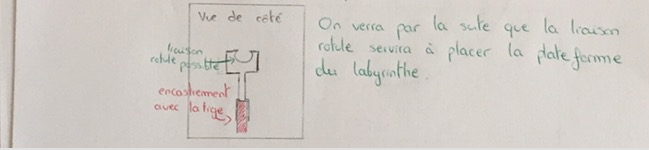 Vue de côté
liaison
rotule possible
encastrement
avec la tige
On verra par la suite que la liaison
rotule servira à placer la plateforme
du labyrinthe.